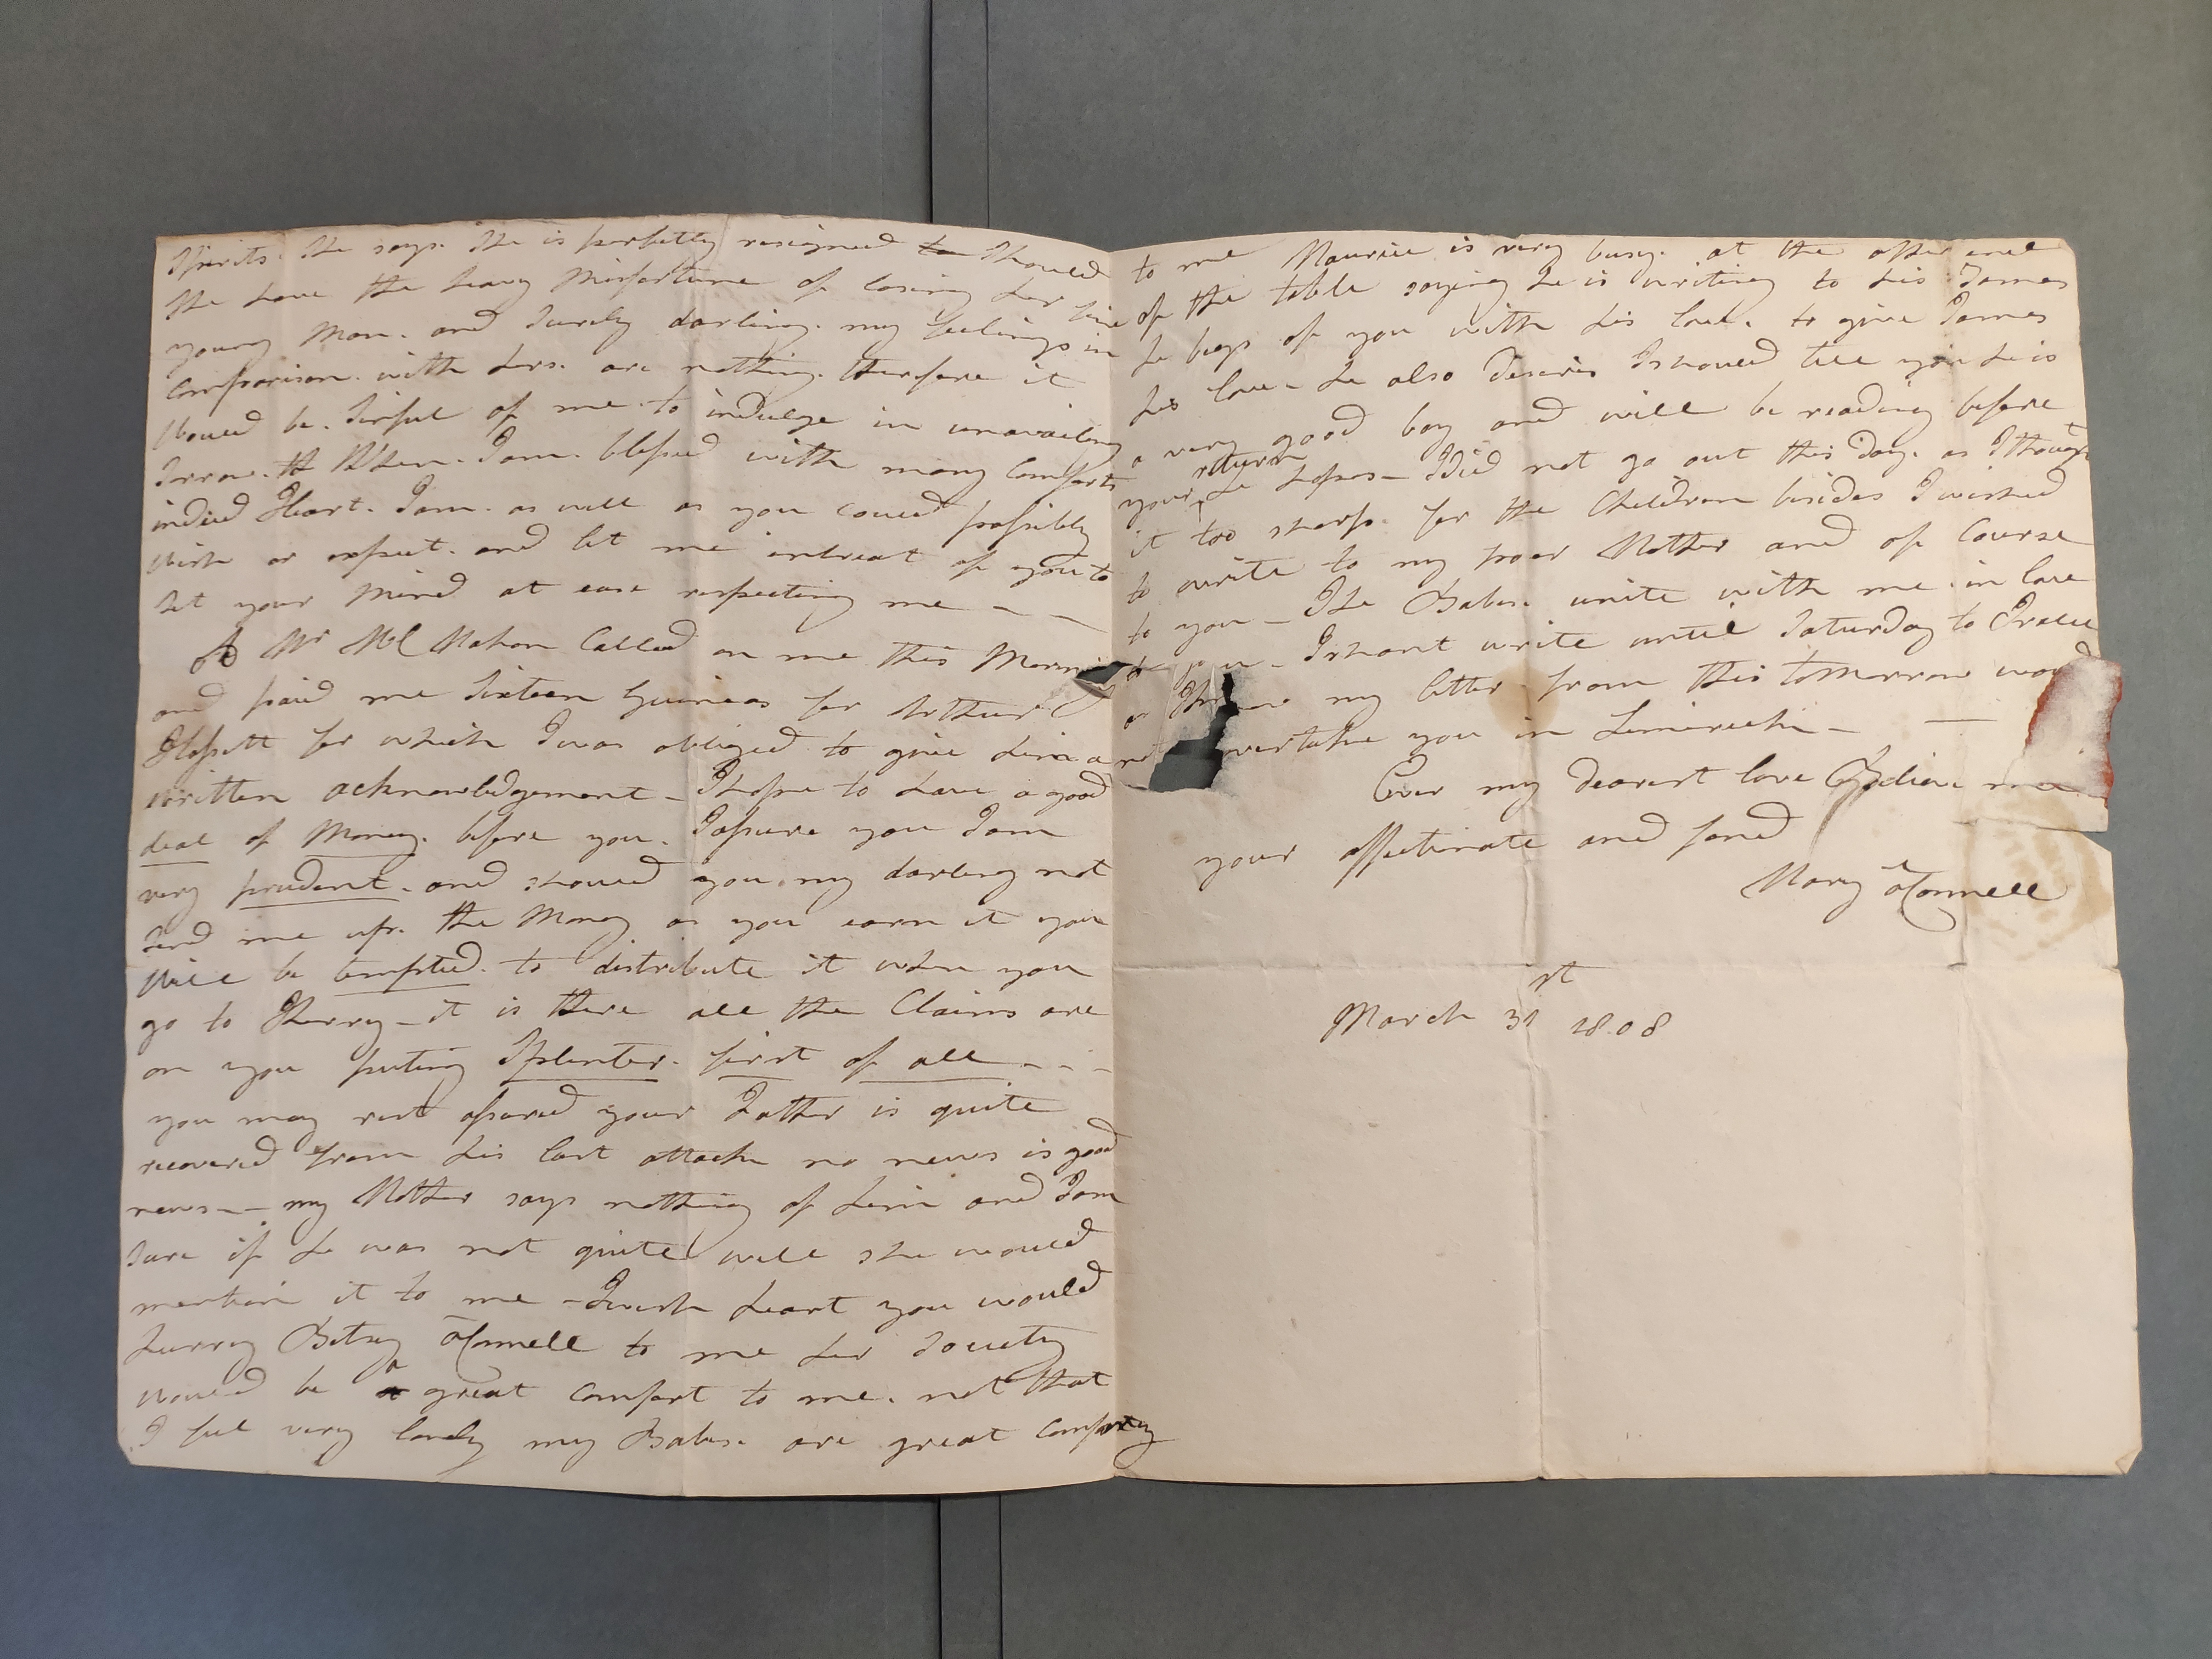 Spirits. She says. She is perfettly resigned to Should
She have the heavy Misfortune of losing her fine
young Man. and Surely darling. my feelings in
Comparison. with hers. are nothing. therefore it
Would be. Sinful of me. to indulge in unavailing
Sorrow. When. I am. blessed with many Comforts
indeed Heart. I am. as well as you could possibly
wish or expect. and let me intreat of you to
Set your Mind at ease respecting me
A Mr McMahon Called on me this Morning
and paid me Sixteen Guineas for Arthur
Blessett for which I was obliged to give him a
written acknowledgement - I hope to have a good
deal of Money. before you. I assure you I am
very prudent. and should you my darling not
Send me up. the Money as you earn it you
Will be tempted. to distribute it when you
go to Kerry - it is there all the Claims are
on you puting Splinter. first of all - - -
you may rest assured your Father is quite
recovered from his last attack no news is good
news - - my Mother says nothing of him and I am
Sure if he was not quite well she would
mention it to me - I wish heart you would
hurry Betsey O'Connell to me her Society
would be a great comfort to me. not that
I feel very lonely my Babes. are great Company
to me Maurice is very busy. at the other end
of the table saying he is writing to his James
he begs of you with his love. to give James
his love - he also desires I should tell you he is
a very good boy and will be reading before
your return he hopes - I did not go out this day. as I thought
it too sharp. for the Children besides I wished
to write to my poor Mother and of Course
to you - The Babes. unite with me. in love
to you - I shant write until Saturday to Tralee
as my letter from this tomorrow would
not overtake you in Limerick -
Ever my dearest love believe me
your affectinate and fond
Mary O'Connell
March 31st 1808